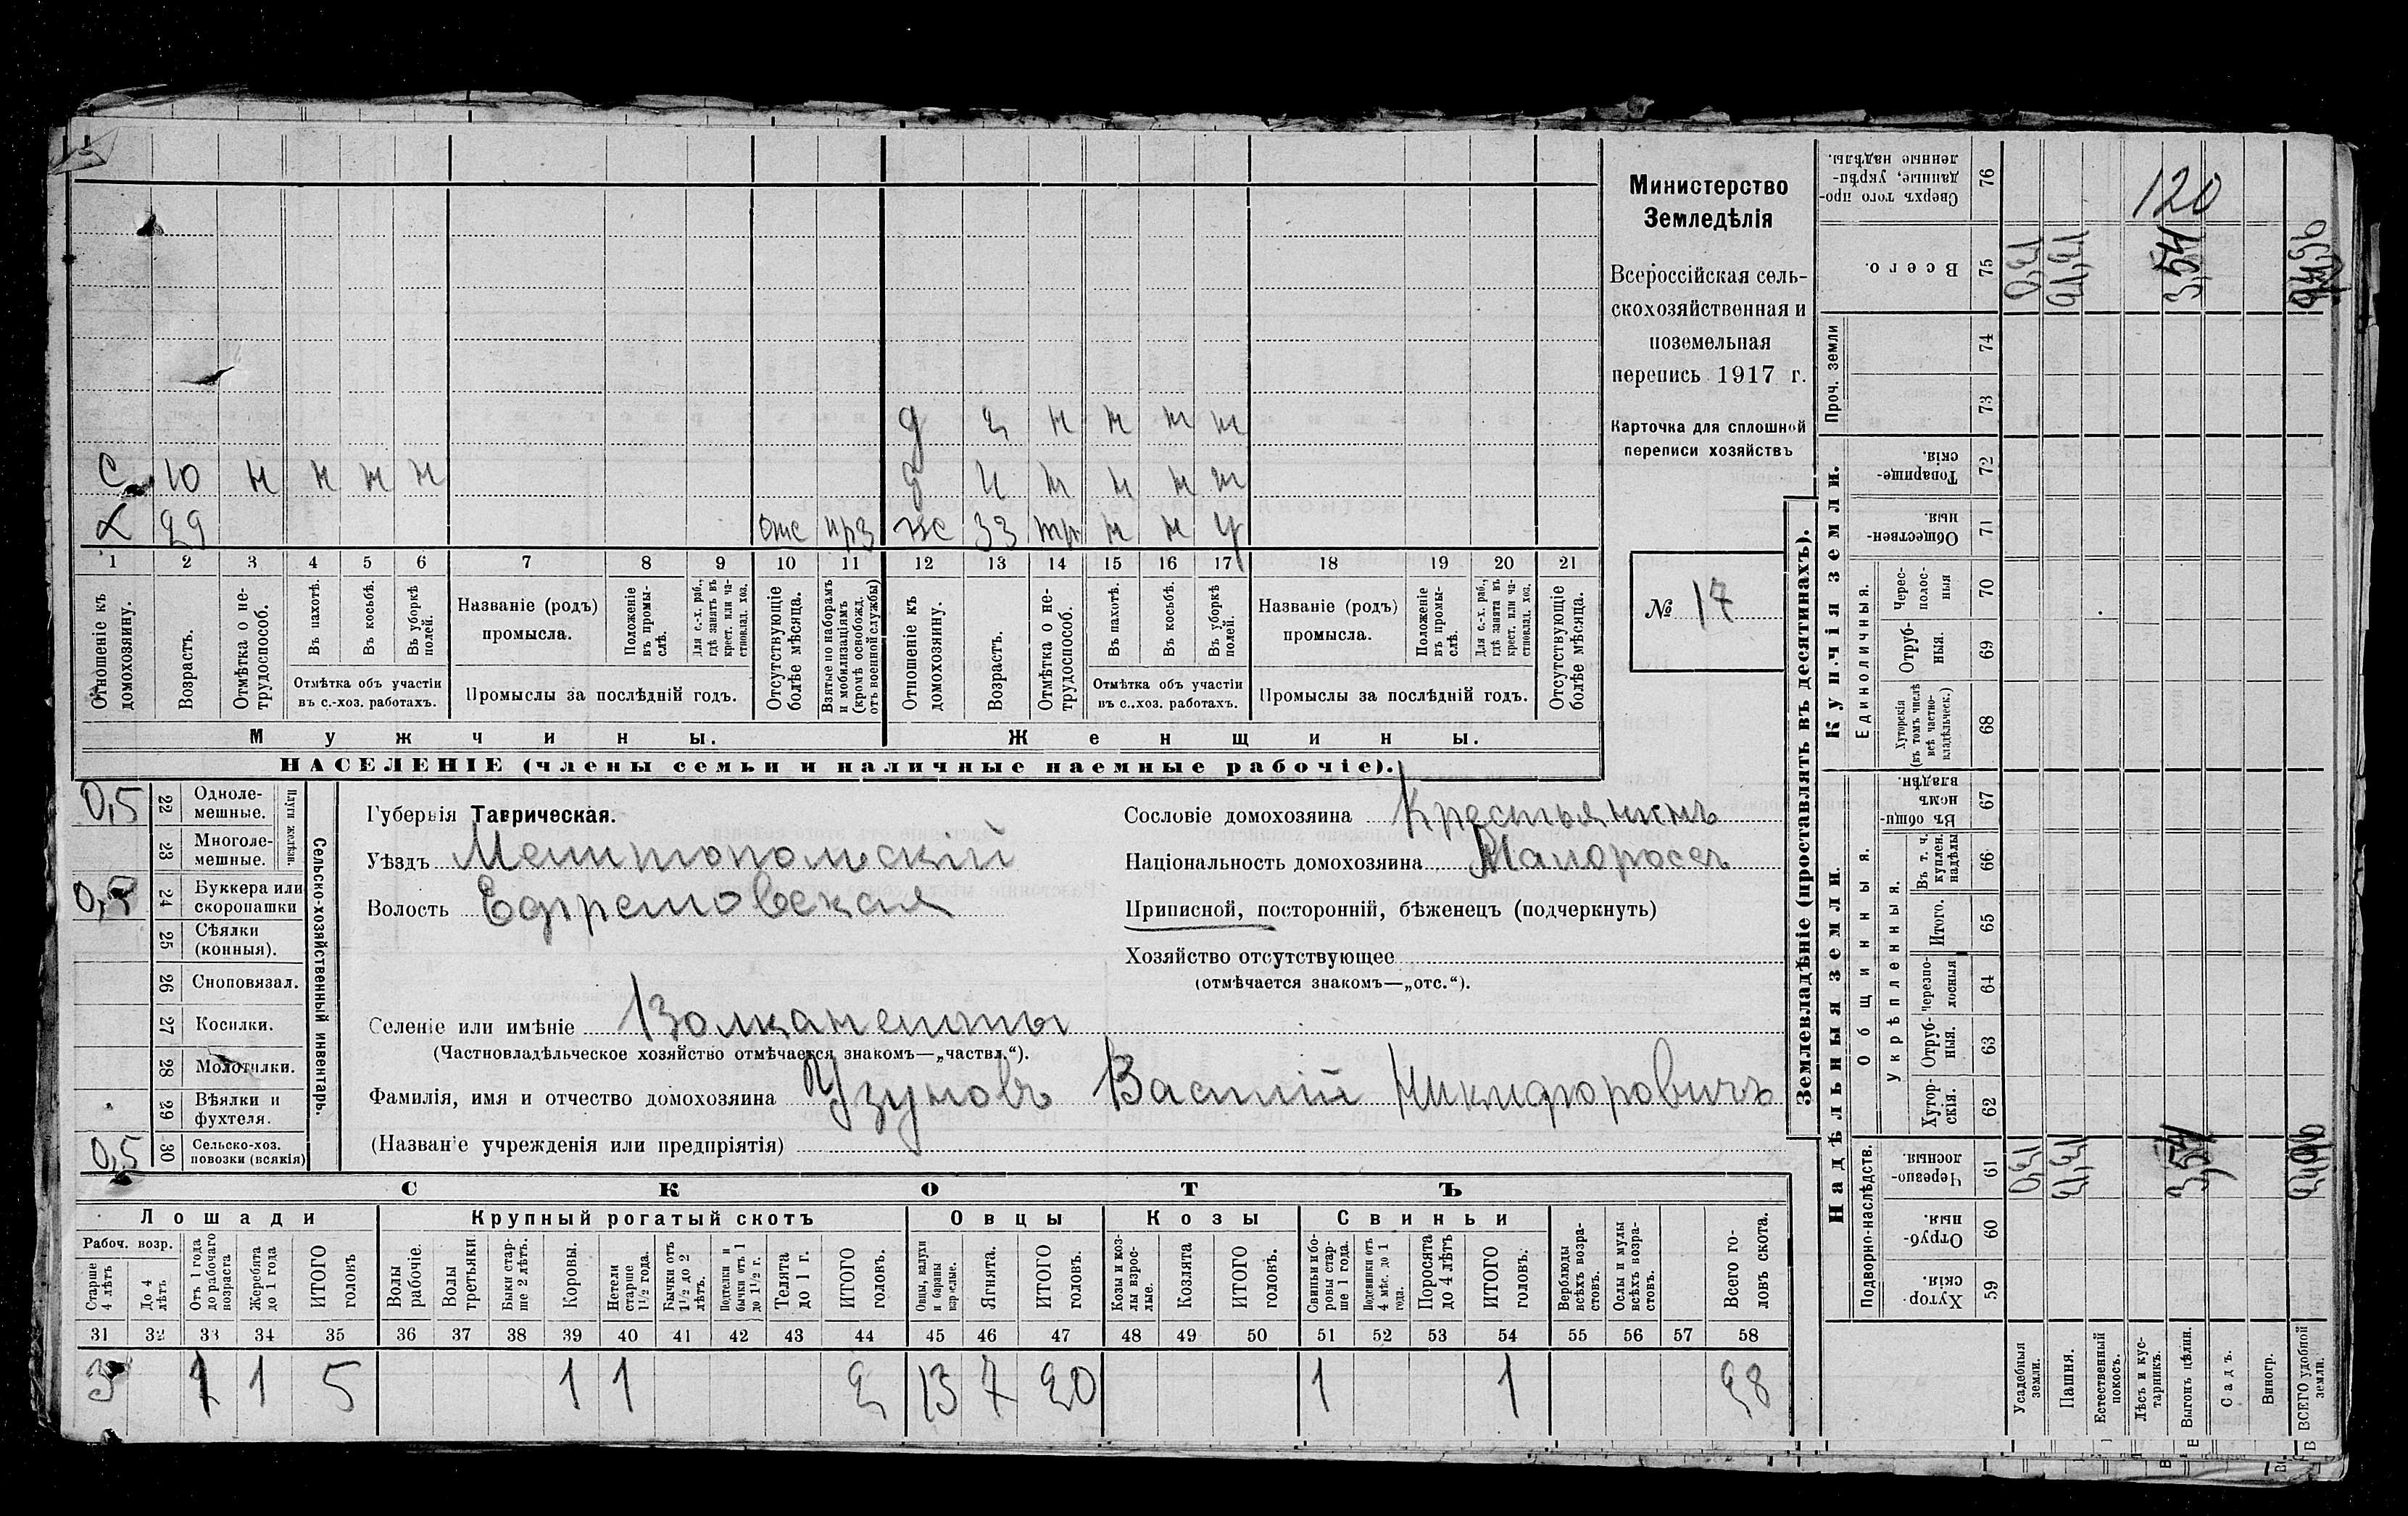 Министерство
Земледѣлія
Всероссійская сель-
скохозяйственная и
поземельная
перепись 1917 г.
Карточка для сплошной
переписи хозяйствъ
№ 17
д 2 н н н н
с 10 н н н н
д 4 н н н н
х 29 отс прз ж 33 тр н н у
1 2 3 4 5 6 7 8 9 10 11 12 13 14 15 16 17 18 19 20 21
Отношеніе къ домохозяину.
Возрастъ.
Отмѣтка о не-трудоспособ.
Въ пахотѣ.
Въ косьбѣ.
Въ уборкѣ полей.
Отмѣтка объ участіи
въ с.-хоз. работахъ.
Названіе (родъ)
промысла.
Положеніе въ промы-слѣ.
Для с.-х. раб., гдѣ занятъ въ крест. или ча-стновлад. хоз.
Промыслы за послѣдній годъ.
Отсутствующіе болѣе мѣсяца.
Взятые по наборамъ и мобилизаціямъ (кромѣ освобожд. отъ военной службы)
Отношеніе къ домохозяину.
Возрастъ.
Отмѣтка о не-трудоспособ.
Въ пахотѣ.
Въ косьбѣ.
Въ уборкѣ полей.
Отмѣтка объ участіи
въ с..хоз. работахъ.
Названіе (родъ)
промысла.
Положеніе въ промы-слѣ.
Для с.-х. раб., гдѣ занята въ крест. или ча-стновлад. хоз.
Промыслы за послѣдній годъ.
Отсутствующіе болѣе мѣсяца.
Мужчины.
Женщины.
НАСЕЛЕНІЕ (члены семьи и наличные наемные рабочіе).
Сельско-хозяйственный инвентарь
Плуги желѣзн.
0,5 22 Одноле-мешные.
23 Многоле-мешные.
0,5 24 Буккера или скоропашки
25 Сѣялки (конныя).
26 Сноповязал.
27 Косилки.
28 Молотилки.
29 Вѣялки и фухтеля.
0,5 30 Сельско-хоз. повозки (всякія)
Губернія Таврическая.
Уѣздъ Мелитопольскій
Волость Ефремовская
Селеніе или имѣніе Волканешты
(Частновладѣльческое хозяйство отмѣчается знакомъ—„частвл.“).
Фамилія, имя и отчество домохозяина Узуновъ Василій Никифоровичъ
(Названіе учрежденія или предпріятія)
Сословіе домохозяина Крестьянинъ
Національность домохозяина Малороссъ
Приписной, посторонній, бѣженецъ (подчеркнуть)
Хозяйство отсутствующее
(отмѣчается знакомъ—„отс.“).
СКОТЪ
Лошади
Крупный рогатый скотъ
Овцы
Козы
Свиньи
Рабоч. возр.
Старше 4 лѣтъ
До 4 лѣтъ
Отъ 1 года до рабочаго возраста
Жеребята до 1 года
ИТОГО головъ
Волы рабочіе.
Волы третьяки
Быки стар-ше 2 лѣтъ.
Коровы.
Нетели старше 1½ года.
Бычки отъ 1½ до 2 лѣтъ.
Подтелки и бычки отъ 1 до 1½ г.
Телята до 1 г.
ИТОГО головъ.
Овцы, валухи и бараны взрослые.
Ягнята.
ИТОГО головъ.
Козы и коз-лы взрос-лые.
Козлята
ИТОГО головъ.
Свиньи и бо-ровы стар-ше 1 года.
Подсвинки отъ 4 мѣс. до 1 года.
Поросята до 4 лѣтъ
ИТОГО головъ.
Верблюды всѣхъ возра-стовъ.
Ослы и мулы всѣхъ возра-стовъ.
Всего го-ловъ скота.
31 32 33 34 35 36 37 38 39 40 41 42 43 44 45 46 47 48 49 50 51 52 53 54 55 56 57 58
3 1 1 5 1 1 2 13 7 20 1 1 28
Землевладѣніе (проставлять въ десятинахъ).
Купчія земли.
Надѣльныя земли.
Сверхъ того про-данные, укрѣп-ленные надѣлы. 76 120
Всего. 75 0,31 3,54
Проч. земли 74
73
Товарище-скія. 72
Обществен-ныя. 71
Единоличныя.
Черес-полос-ныя 70
Отруб-ныя. 69
Хуторскія (въ томъ числѣ всѣ частно-владѣльческ.) 68
Общинныя.
Въ общин-номъ владѣн. 67
Укрѣпленныя.
Въ т. ч. куплен. надѣлы 66
Итого. 65
Черезпо-лосныя 64
Отруб-ныя. 63
Хутор-скія. 62
Подворно-наслѣдств.
Черезпо-лосныя. 61 0,31 3,54
Отруб-ныя. 60
Хутор-скія. 59
Усадебныя земли.
Пашня.
Естественный покосъ.
Лѣсъ и кус-тарникъ.
Выгонъ цѣлин.
Садъ.
Виногр.
ВСЕГО удобной земли.